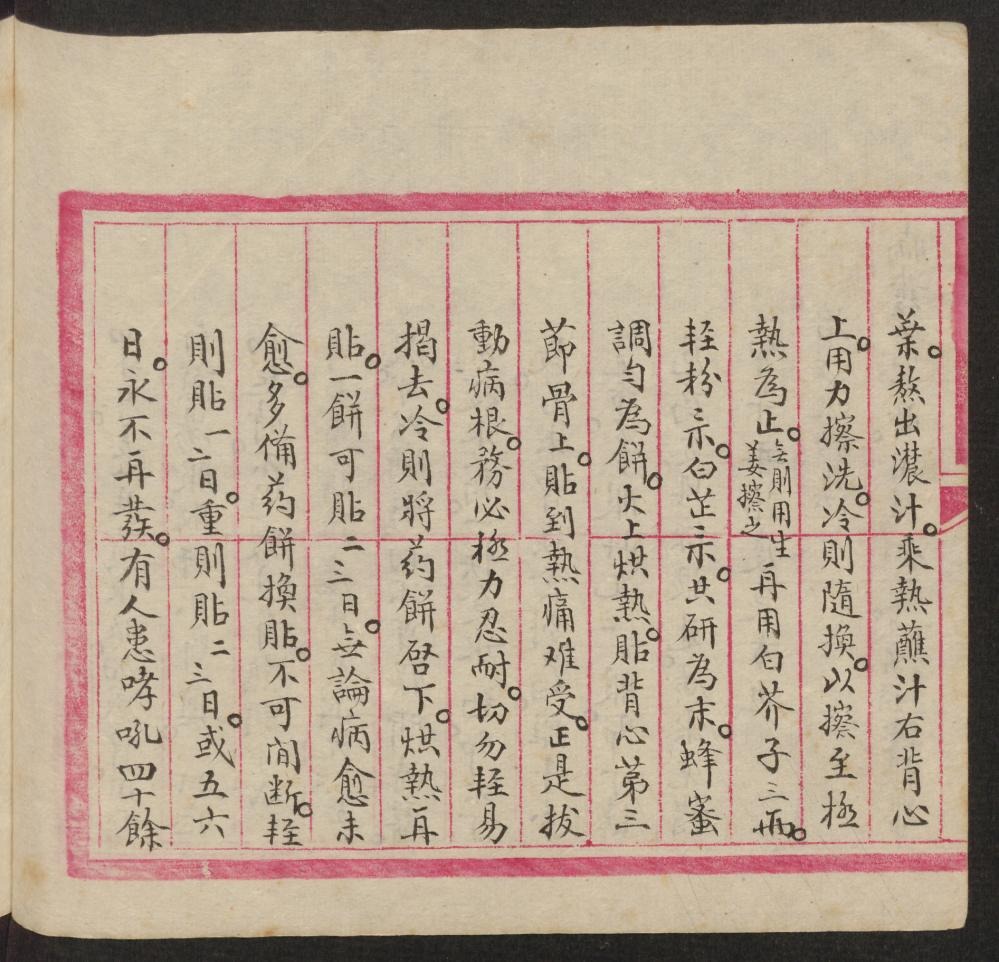 葉。熬出濃汁。乘熱蘸汁右背心
上。用力擦洗。冷則隨換。以擦至極
熱為止。無則用生姜擦之再用白芥子三両。
輊粉三示。白芷三示。共研為末。蜂蜜
調勻為餅。火上烘熱。貼背心第三
節骨上。貼到熱痛难受。正是拔
動病根。務必極力忍耐。切勿輊易
揭去。冷則將药餅啓下。烘熱再
貼。一餅可貼二三日。無論病愈未
愈。多俻药餅換貼。不可间断。輊
則貼一二日。重則貼二三日。或五六
日。永不再發。有人患哮吼四十餘